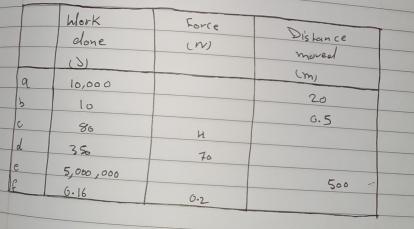 Work done (J) Force (N) Distance moved (m)
a 10,000 20
b 10 0.5
c 80 4
d 350 70
e 5,000,000 500
f 0.16 0.2